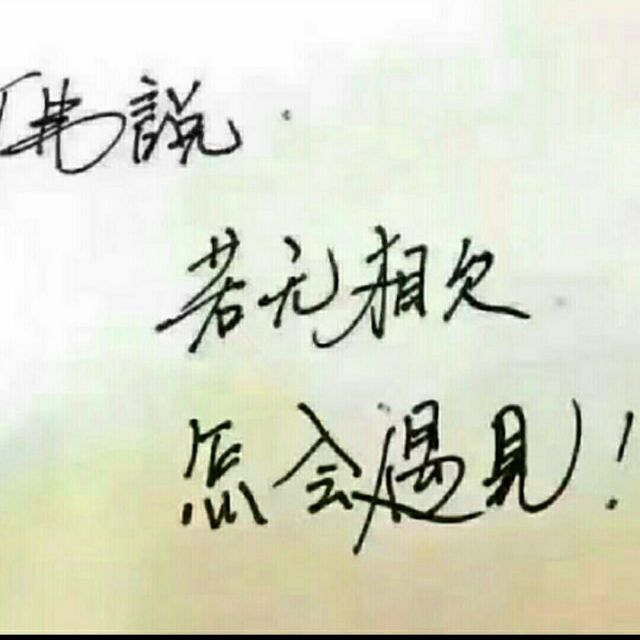 佛說
若无相欠
怎会遇見！